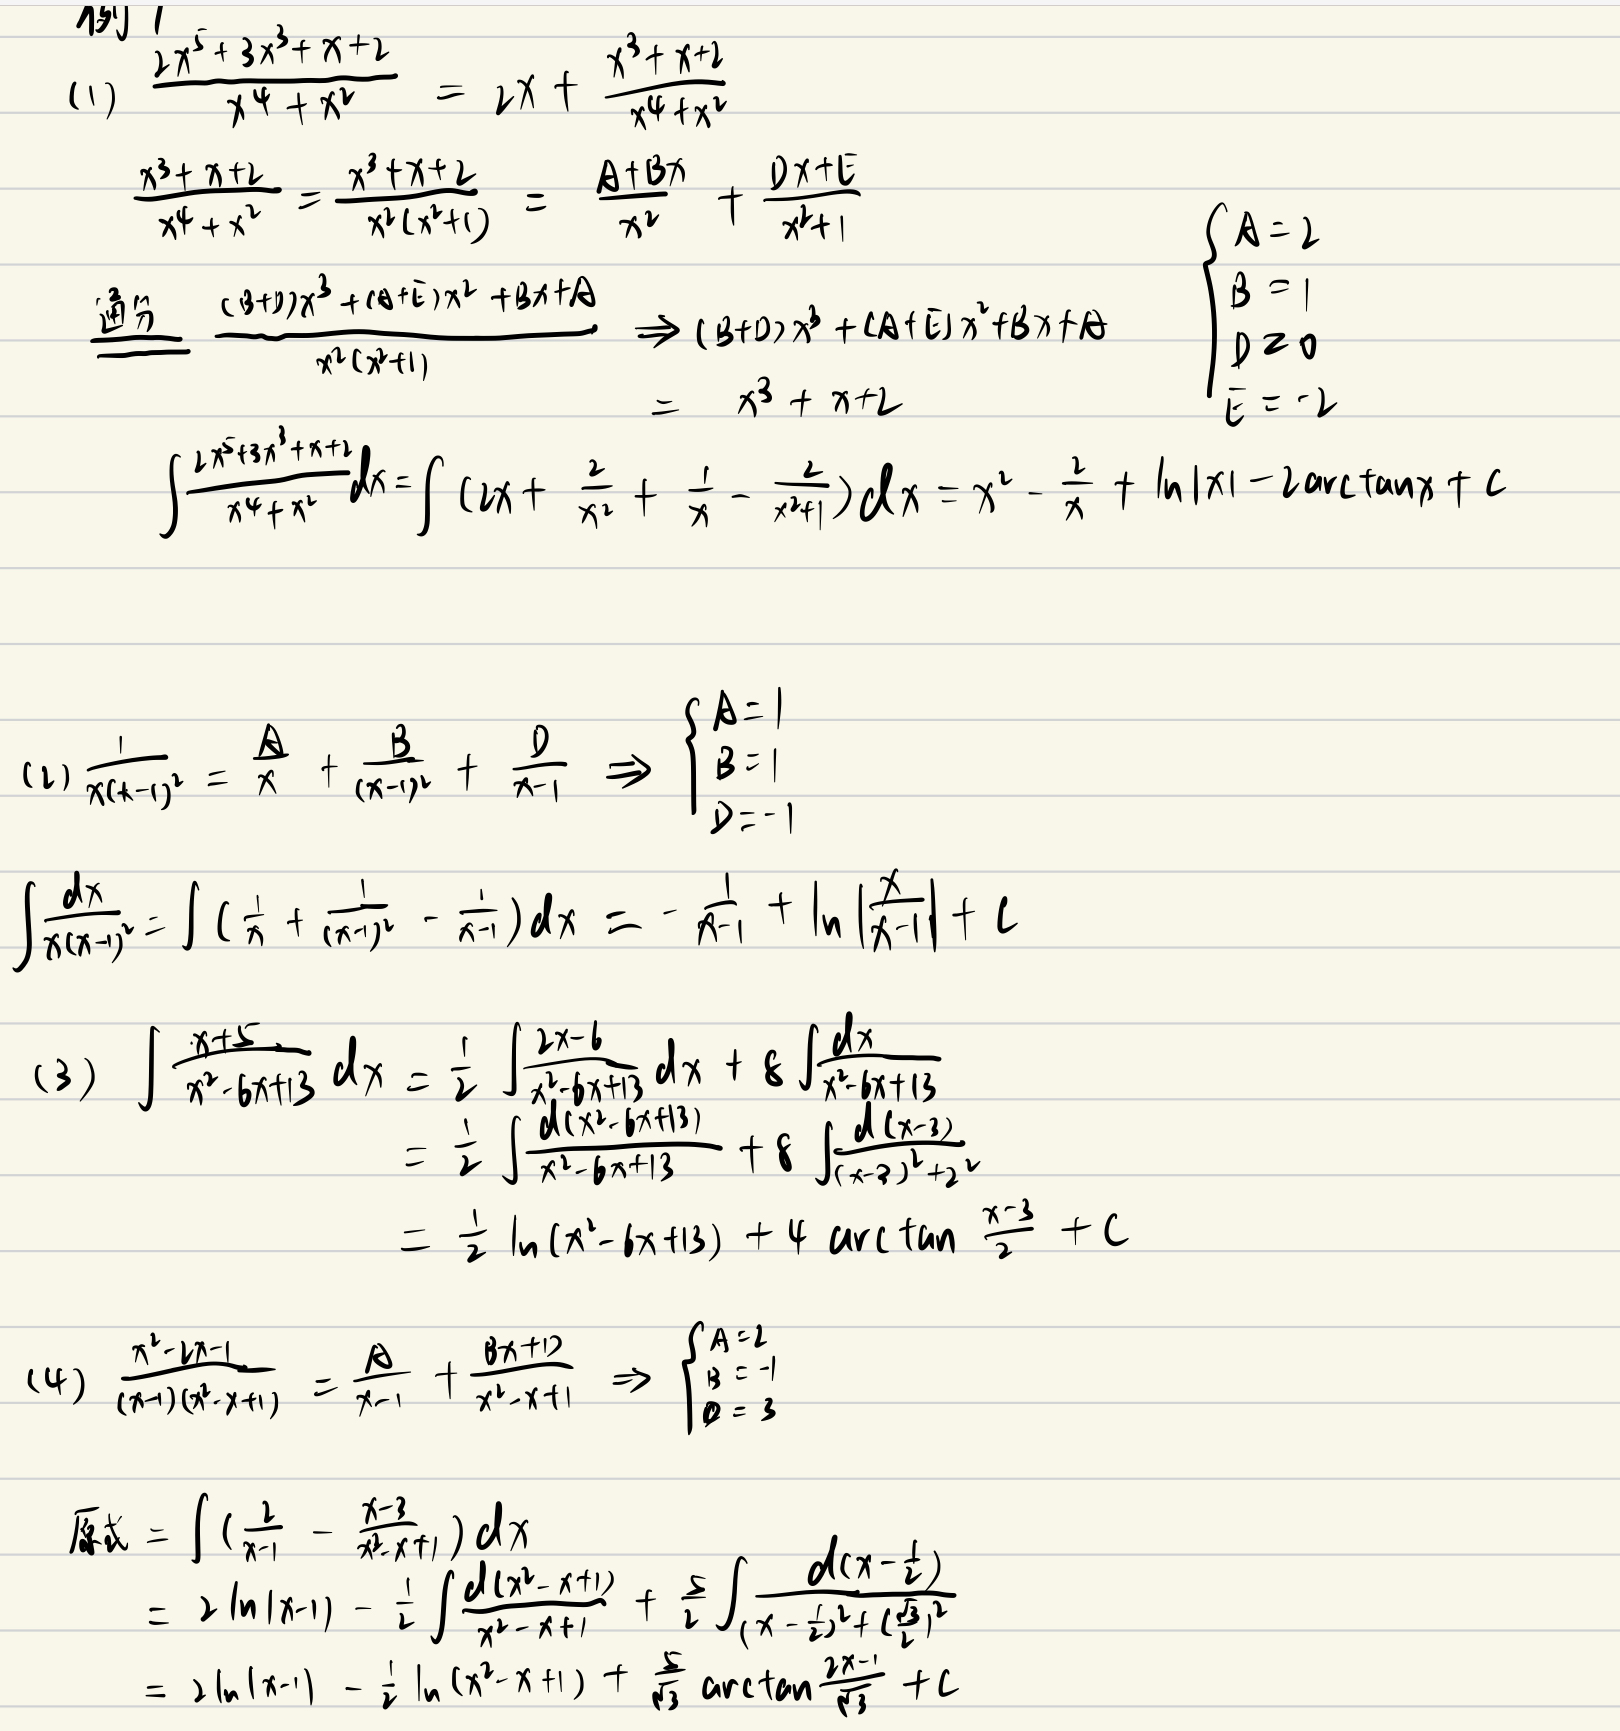 例1
(1) \frac{2x^5+3x^3+x+2}{x^4+x^2} = 2x + \frac{x^3+x+2}{x^4+x^2}
\frac{x^3+x+2}{x^4+x^2} = \frac{x^3+x+2}{x^2(x^2+1)} = \frac{A+Bx}{x^2} + \frac{Dx+E}{x^2+1}
通分 \frac{(B+D)x^3+(A+E)x^2+Bx+A}{x^2(x^2+1)} ⇒ (B+D)x^3+(A+E)x^2+Bx+A
= x^3+x+2
{ A=2
B=1
D=0
E=-2
∫\frac{2x^5+3x^3+x+2}{x^4+x^2}dx = ∫(2x+\frac{2}{x^2}+\frac{1}{x}-\frac{2}{x^2+1})dx = x^2-\frac{2}{x}+ln|x|-2arctanx+C
(2) \frac{1}{x(x-1)^2} = \frac{A}{x} + \frac{B}{(x-1)^2} + \frac{D}{x-1} ⇒ { A=1
B=1
D=-1
∫\frac{dx}{x(x-1)^2} = ∫(\frac{1}{x}+\frac{1}{(x-1)^2}-\frac{1}{x-1})dx = -\frac{1}{x-1}+ln|\frac{x}{x-1}|+C
(3) ∫\frac{x+5}{x^2-6x+13}dx = \frac{1}{2}∫\frac{2x-6}{x^2-6x+13}dx + 8∫\frac{dx}{x^2-6x+13}
= \frac{1}{2}∫\frac{d(x^2-6x+13)}{x^2-6x+13} + 8∫\frac{d(x-3)}{(x-3)^2+2^2}
= \frac{1}{2}ln(x^2-6x+13) + 4 arctan\frac{x-3}{2} + C
(4) \frac{x^2-2x-1}{(x-1)(x^2-x+1)} = \frac{A}{x-1} + \frac{Bx+D}{x^2-x+1} ⇒ { A=2
B=-1
D=3
原式 = ∫(\frac{2}{x-1}-\frac{x-3}{x^2-x+1})dx
= 2ln|x-1| - \frac{1}{2}∫\frac{d(x^2-x+1)}{x^2-x+1} + \frac{5}{2}∫\frac{d(x-\frac{1}{2})}{(x-\frac{1}{2})^2+(\frac{\sqrt{3}}{2})^2}
= 2ln|x-1| - \frac{1}{2}ln(x^2-x+1) + \frac{5}{\sqrt{3}}arctan\frac{2x-1}{\sqrt{3}} + C